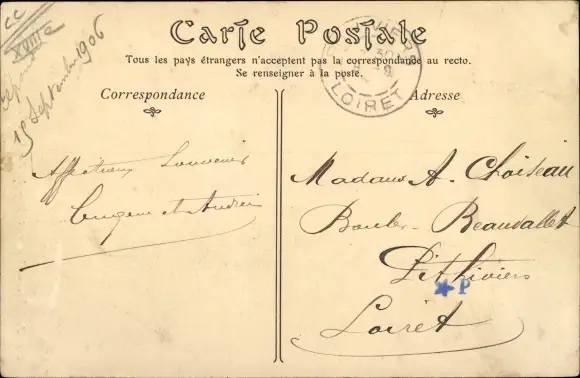 CC
XVIIIe
15 Septembre 1906
Carte Postale
Tous les pays étrangers n'acceptent pas la correspondance au recto.
Se renseigner à la poste.
Correspondance
Adresse
LOIRET
Affectueux Souvenir
Eugène et Andrée
Madame A. Choiseau
Boulev. Beauvallet
Pithiviers
P
Loiret